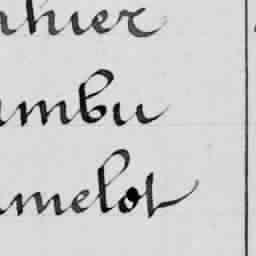 nhier
umbu
amelot